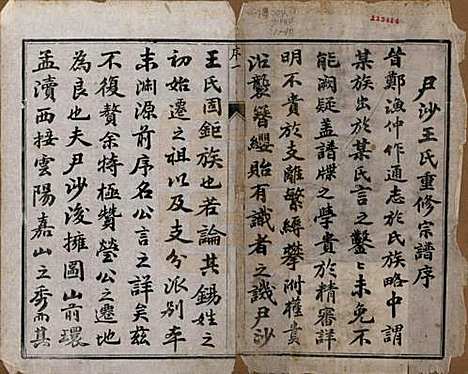 尹沙王氏重修宗譜序
昔鄭漁仲作通志於氏族略中謂
某族出於某氏言之鑿鑿未免不
能闕疑蓋譜牒之學貴於精審詳
明不貴於支離繁縟攀附權貴
沿襲簪纓貽有識者之譏尹沙
序一
王氏固鉅族也若論其錫姓之
初始遷之祖以及支分派別本
末淵源前序名公言之詳矣茲
不復贅余特極贊瑩公之遷地
為良也夫尹沙後擁圌山前環
孟瀆西接雲陽嘉山之秀而其